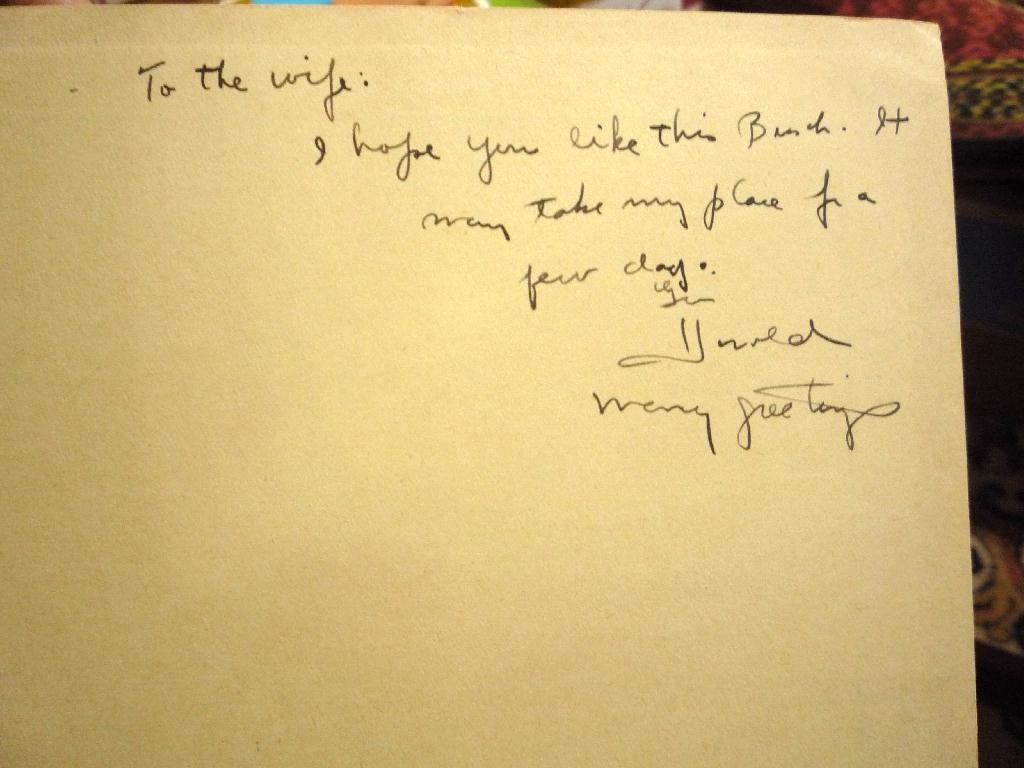 To the wife:
I hope you like this Busch. It
may take my place for a
few days.
Harold
many greetings